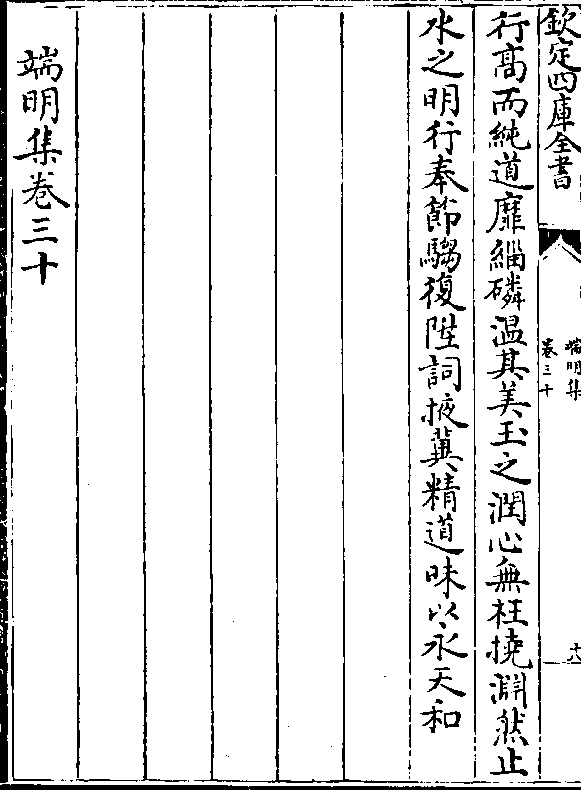 欽定四庫全書
端明集
卷三十
行髙而純道靡緇磷温其美玉之潤心無枉撓淵然止
水之明行奉節騶復陞詞掖冀精道味以永天和
端明集卷三十